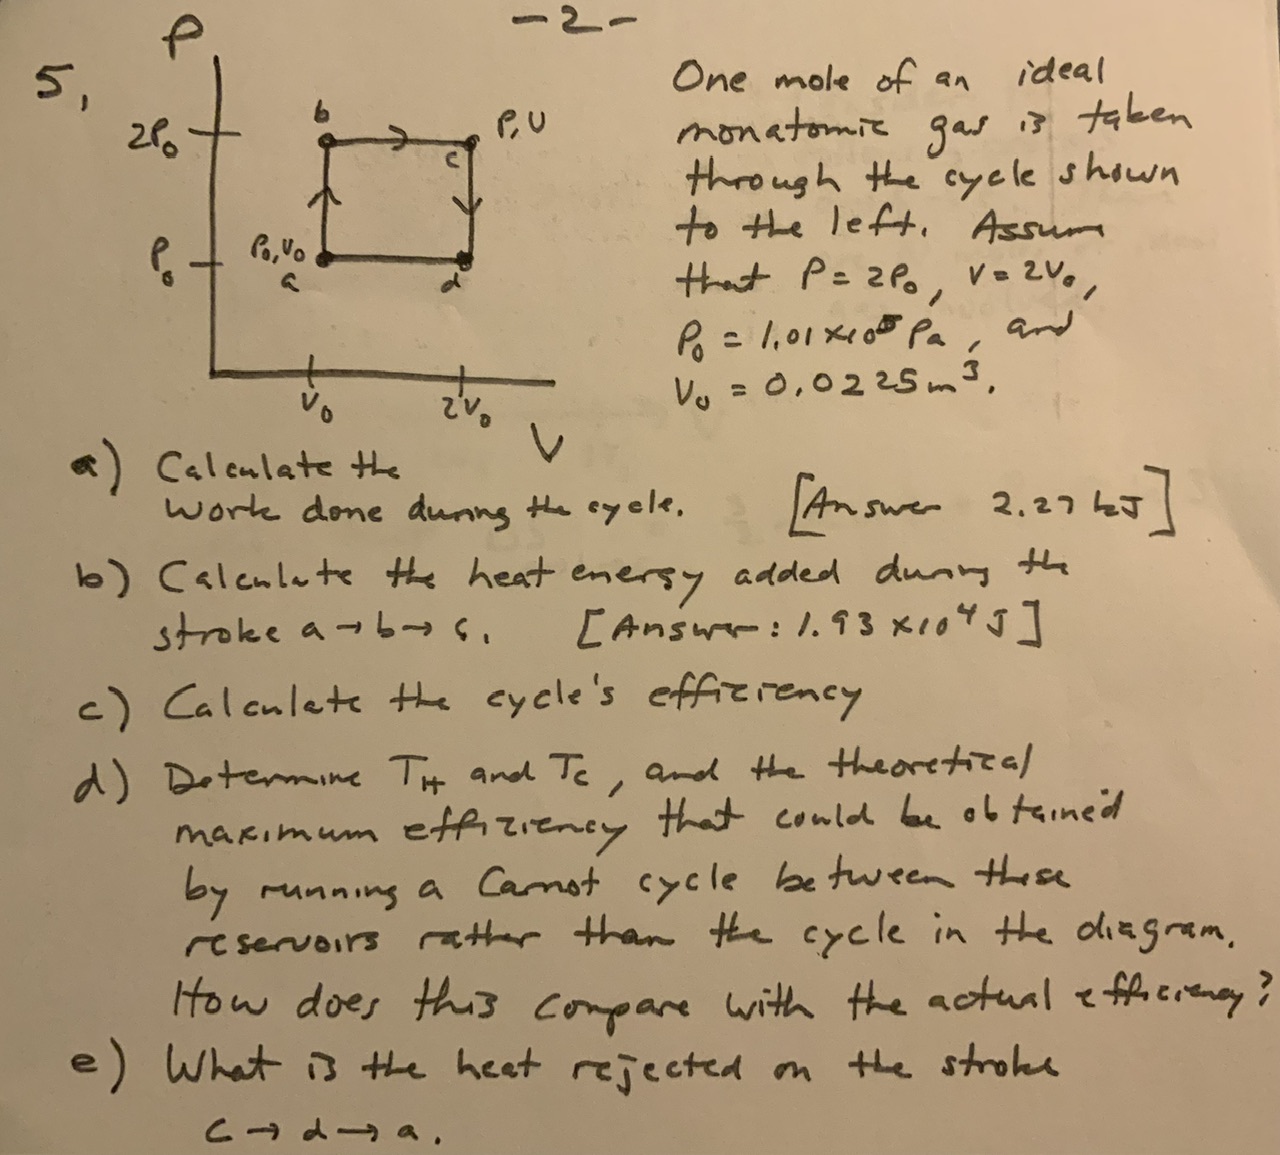 -2-
5,
P
2P₀
P₀
b
P,V
c
P₀,V₀
a
d
V₀
2V₀
V
One mole of an ideal
monatomic gas is taken
through the cycle shown
to the left. Assume
that P = 2P₀, V = 2V₀,
P₀ = 1.01×10⁵ Pa, and
V₀ = 0.0225 m³.
a) Calculate the
work done during the cycle. [Answer 2.27 kJ]
b) Calculate the heat energy added during the
stroke a→b→c. [Answer: 1.93×10⁴ J]
c) Calculate the cycle's efficiency
d) Determine T_H and T_C, and the theoretical
maximum efficiency that could be obtained
by running a Carnot cycle between these
reservoirs rather than the cycle in the diagram.
How does this compare with the actual efficiency?
e) What is the heat rejected on the stroke
c→d→a.